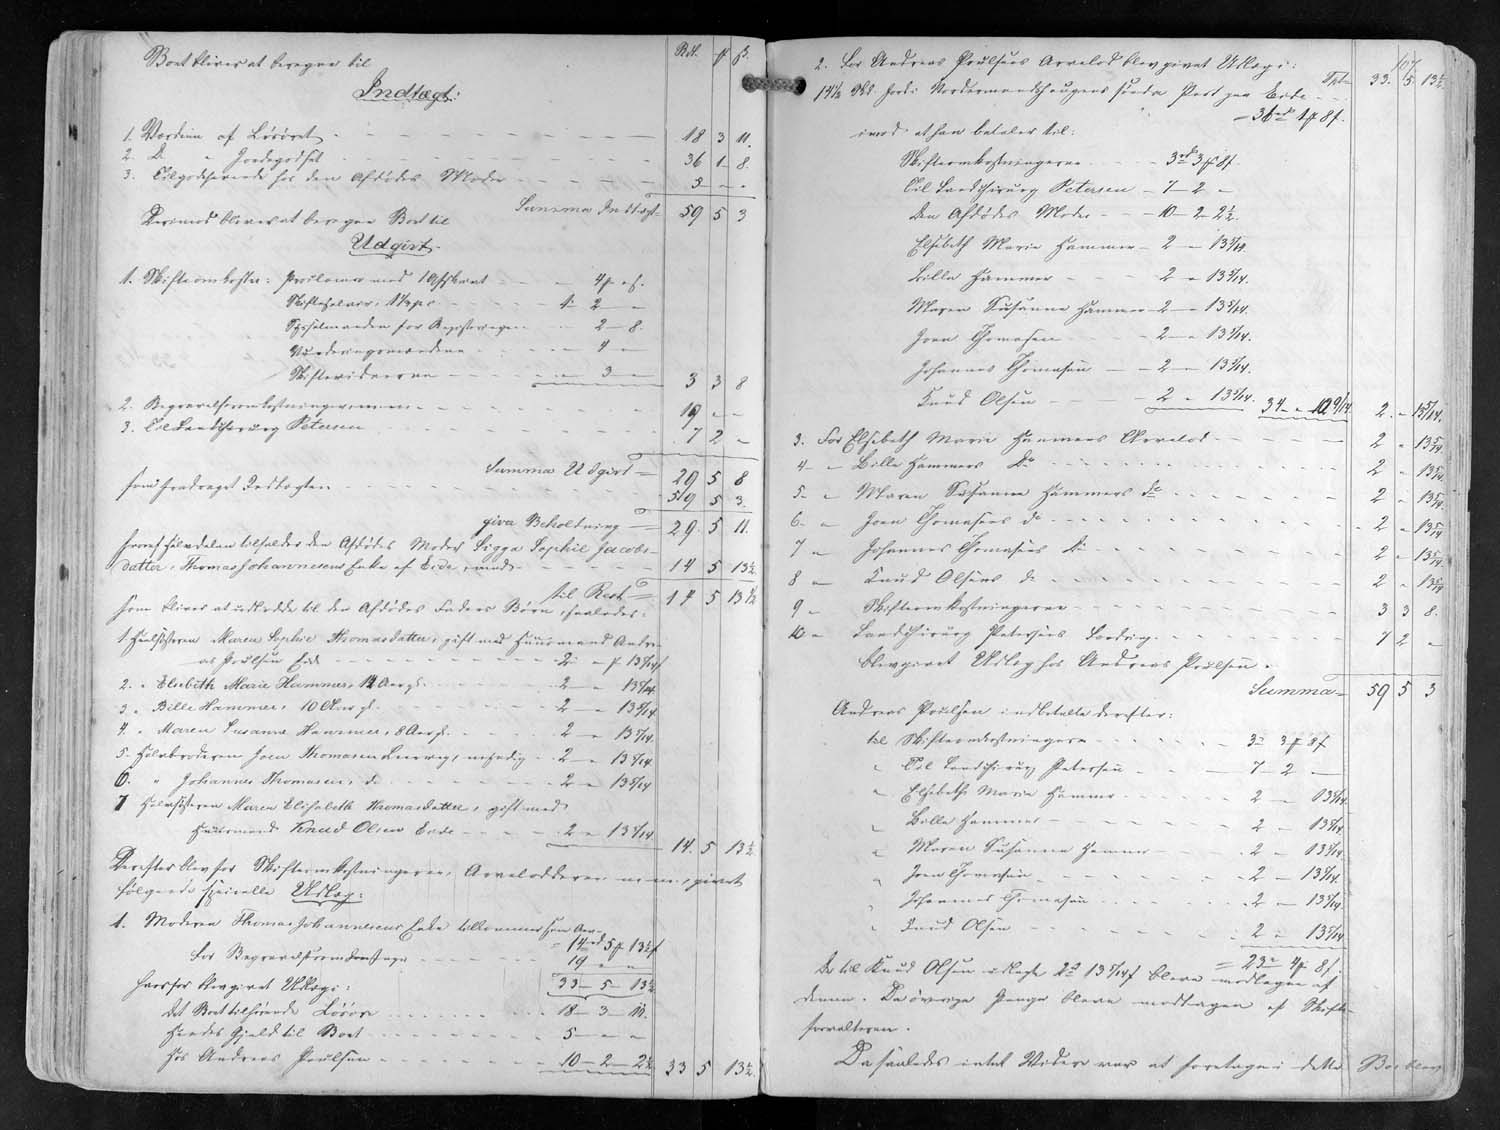 Boet bliver at beregne til
Rd. ₰ ß.
Indtægt:
1. Værdien af Løsöret 18 3 11.
2. D. " Jordegodset 36 1 8.
3. Tilgodehavende hos den Afdödes Moder 5 " "
Summa Indtægt 59 5 3
Derimod bliver at beregne Boet til
Udgivt.
1. Skifteomkostn: Proclama med 1 Afskrivt 4 ₰ " ß.
Skiftegebyr, 1 1/2 pc 1 2 "
Sysselmanden for Registeringen 2 - 8.
Vurderingsmændene 4 "
Skiftevidnerne 3 " 3 3 8
2. Begravelsesomkostningerne 19 " "
3. Til Landchirurg Petersen 7 2 "
Summa Udgivt 29 5 8
som fradraget Indtægten 59 5 3.
giver Beholdning 29 5 11.
hvoraf Halvdelen tilfalder den Afdödes Moder Sigga Sophie Jacobs-
datter, Thomas Johannesens Enke af Eide, med 14 5 13 1/2
til Rest 14 5 13 1/2
som bliver at udlodde til den Afdödes Faders Börn, saaledes:
1. Halvsösteren Maren Sophie Thomasdatter, gift med Huusmand Andre-
as Poulsen Eide 2 " ₰ 13 5/14 ß
2. " Elsebeth Marie Hammer, 14 Aar gl. 2 " 13 5/14.
3. " Bille Hammer, 10 Aar gl. 2 " 13 5/14.
4. " Maren Susanne Hammer, 8 Aar gl. 2 " 13 5/14.
5. Halvbroderen Joen Thomasen , myndig 2 " 13 5/14
6. " Johannes Thomasen, d. 2 " 13 5/14
7 Halvsösteren Maren Elisabeth Thomasdatter, gift med
Huusmand Knud Olsen Eide 2 " 13 5/14. 14. 5 13 1/2
Derefter blev for Skifteomkostningerne, Arvelodderne m.m., givet
følgende specielle Udlæg:
1. Moderen Thomas Johannesens Enke tilkommer som Arv
14 rd 5 ₰ 13 1/2 ß
for Begravelsesomkostninger 19 " "
33 - 5 - 13 1/2
herfor blev givet Udlæg:
det Boet tilhørende Løsöre 18 - 3 - 11.
Hendes Gjeld til Boet 5 - " "
hos Andreas Poulsen 10 - 2 - 2 1/2 33 5 13 1/2
107
2. For Andreas Poulsens Arvelod blev givet Udlæg:
Tpt. 33. 5. 13 1/2.
Jord i
= 36 rd 1 ₰ 8 ß.
imod at han betaler til:
Skifteomkostningerne 3 rd 3 ₰ 8 ß.
Til Landchirurg Petersen 7 - 2 "
den Afdödes Moder 10 - 2 - 2 1/2.
Elsebeth Marie Hammer 2 " 13 5/14.
Bille Hammer 2 " 13 5/14.
Maren Susanne Hammer 2 " 13 5/14.
Joen Thomasen 2 " 13 5/14.
Johannes Thomasen 2 " 13 5/14.
Knud Olsen 2 " 13 5/14. 34 " 10 9/14 2. " 13 5/14.
3. For Elsebeth Marie Hammers Arvelod 2 " 13 5/14
4 " Bille Hammers do 2 " 13 5/14
5 " Maren Susanne Hammers do 2 " 13 5/14
6 " Joen Thomasens do 2 " 13 5/14
7 " Johannes Thomasens do 2 " 13 5/14
8 " Knud Olsens do 2 " 13 5/14
9 " Skifteomkostningerne 3 3 8.
10 " Landchirurg Petersens Fordring 7 2 "
blev givet Udlæg hos Andreas Poulsen.
Summa 59 5 3
Andreas Poulsen indbetalte derefter:
til Skifteomkostningerne 3 rd 3 ₰ 8 ß
" Til Landchirurg Petersen 7 - 2 "
" Elsebeth Marie Hammer 2 " 13 5/14.
" Bille Hammer 2 " 13 5/14.
" Maren Susanne Hammer 2 " 13 5/14.
" Joen Thomasen 2 " 13 5/14.
" Johannes Thomasen 2 " 13 5/14.
" Knud Olsen 2 " 13 5/14
= 23 rd 4 ₰ 8 ß
De til Knud Olsen udlagte 2 rd 13 5/14 ß bleve modtagen af
denne. De övrige Penge bleve modtagen af Skifte-
forvalteren.
Da saaledes intet Videre var at foretage i dette Bo blev